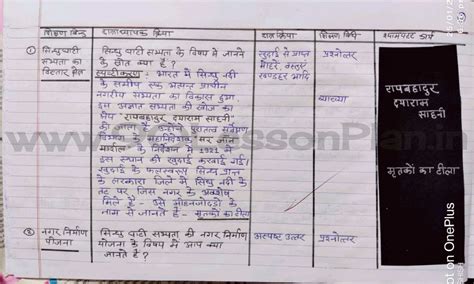 शिक्षण बिन्दु छात्राध्यापक क्रिया छात्र क्रिया शिक्षण विधि श्यामपट्ट कार्य
① सिन्धु घाटी सभ्यता का विस्तार क्षेत्र
सिन्धु घाटी सभ्यता के विषय में जानने
के स्रोत क्या हैं ?
खुदाई से प्राप्त
मोहरें, बस्तुएँ
खण्डहर आदि
प्रश्नोत्तर
स्पष्टीकरण :- भारत में सिन्धु नदी
के समीप एक अत्यन्त प्राचीन
नगरीय सभ्यता का विकास हुआ
इस अज्ञात सभ्यता की खोज का
श्रेय "रायबहादुर दयाराम साहनी"
को जाता है उन्होंने पुरातत्व सर्वेक्षण
विभाग के महानिदेशक "सर जॉन
मार्शल" के निर्देशन में 1921 में
इस स्थान की खुदाई करवाई गई।
खुदाई के फलस्वरूप सिन्ध प्रान्त
के लरकाना जिले में सिन्धु नदी के
तट पर जिस नगर के अवशेष
मिले हैं - उसे मोहनजोदड़ो के
नाम से जानते हैं - मृतकों का टीला
व्याख्या
रायबहादुर
दयाराम
साहनी
मृतकों का टीला
② नगर निर्माण
योजना
सिन्धु घाटी सभ्यता की नगर निर्माण
योजना के विषय में आप क्या
जानते हैं ?
अस्पष्ट उत्तर
प्रश्नोत्तर
LessonPlan.in
ot on OnePlus